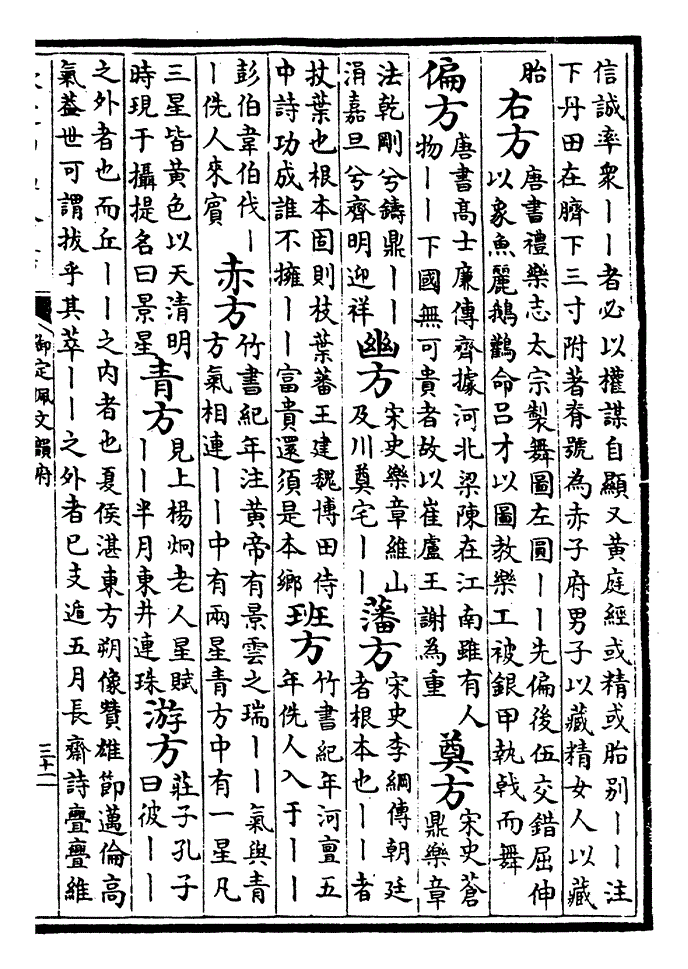 信誠率衆丨丨者必以權謀自顯又黃庭經或精或胎别丨丨注
下丹田在臍下三寸附著脊號為赤子府男子以藏精女人以藏
胎
右方
唐書禮樂志太宗製舞圖左圓丨丨先偏後伍交錯屈伸
以象魚麗鵝鸛命吕才以圖教樂工被銀甲執戟而舞
偏方
唐書高士廉傳齊據河北梁陳在江南雖有人
物丨丨下國無可貴者故以崔盧王謝為重
奠方
宋史蒼
鼎樂章
法乾剛兮鑄鼎丨丨
涓嘉旦兮齊明迎祥
幽方
宋史樂章維山
及川奠宅丨丨
藩方
宋史李綱傳朝廷
者根本也丨丨者
枝葉也根本固則枝葉蕃王建魏博田侍
中詩功成誰不擁丨丨富貴還須是本鄉
班方
竹書紀年河亶五
年侁人入于丨丨
彭伯韋伯伐丨
丨侁人來賓
赤方
竹書紀年注黃帝有景雲之瑞丨丨氣與青
方氣相連丨丨中有兩星青方中有一星凡
三星皆黃色以天清明
時現于攝提名曰景星
青方
見上楊炯老人星賦
丨丨半月東井連珠
游方
莊子孔子
曰彼丨丨
之外者也而丘丨丨之内者也夏侯湛東方朔像贊雄節邁倫高
氣葢世可謂拔乎其萃丨丨之外者已支遁五月長齋詩亹亹維
御定佩文韻府
三十二